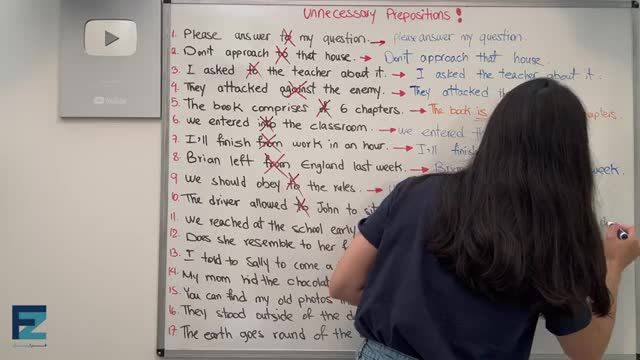 Unnecessary Prepositions!
1. Please answer to my question. → please answer my question.
2. Don't approach to that house. → Don't approach that house.
3. I asked to the teacher about it. → I asked the teacher about it.
4. They attacked against the enemy. → They attacked
5. The book comprises of 6 chapters. → The book is chapters.
6. we entered into the classroom. → we entered
7. I'll finish from work in an hour. → I'll finish
8. Brian left from England last week. → week.
9. we should obey to the rules. →
10. The driver allowed to John to
11. we reached at the school early
12. Does she resemble to her
13. I told to Sally to come a
14. My mom hid the
15. You can find my old photos
16. They stood outside of the
17. The earth goes round of the
YouTube
EZ